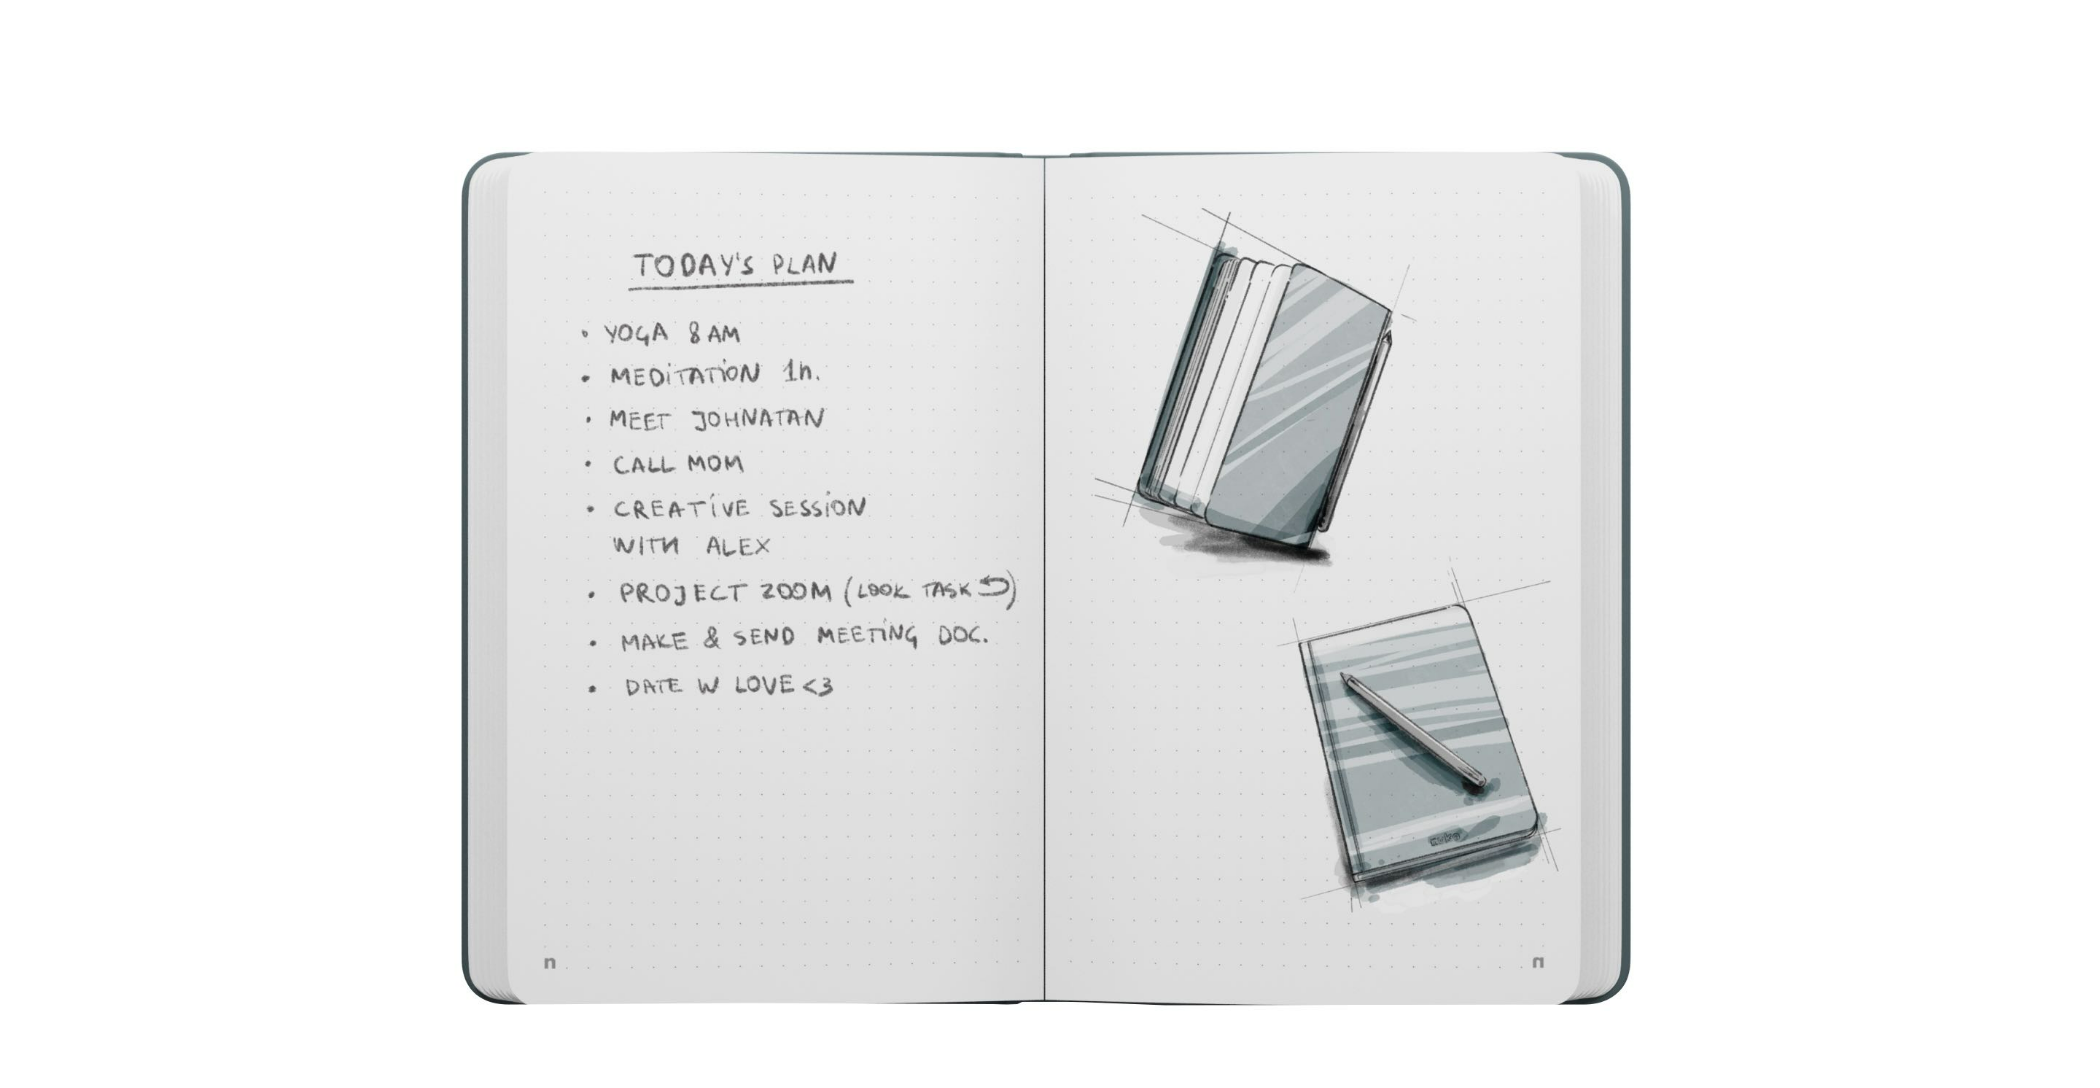 TODAY'S PLAN
• YOGA 8 AM
• MEDiTATiON 1h.
• MEET JOHNATAN
• CALL MOM
• CREATiVE SESSiON
WITH ALEX
• PROJECT ZOOM (LOOK TASK ⮌)
• MAKE & SEND MEETiNG DOC.
• DATE W LOVE <3
n
n